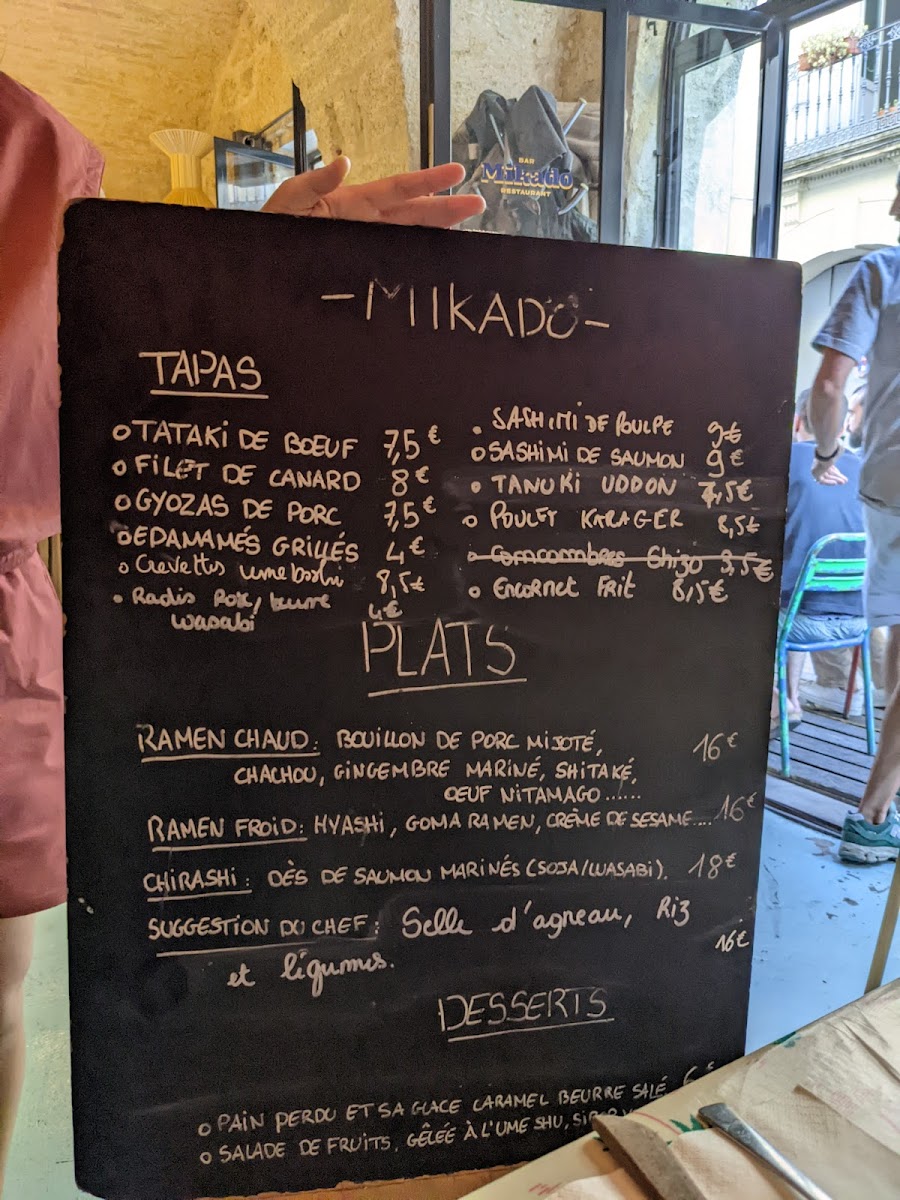 BAR
Mikado
RESTAURANT
-MIKADO-
TAPAS
TATAKI DE BOEUF 7,5€
FILET DE CANARD 8€
GYOZAS DE PORC 7,5€
EDAMAMÉS GRILLÉS 4€
Crevettes umeboshi 8,5€
Radis Pok, beurre
wasabi 4€
SASHIMI DE POULPE 9€
SASHIMI DE SAUMON 9€
TANUKI UDDON 7,5€
POULET KARAGER 8,5€
Concombres Shizo 3,5€
Encornet Frit 8,5€
PLATS
RAMEN CHAUD: BOUILLON DE PORC MIJOTÉ, 16€
CHACHOU, GINGEMBRE MARINÉ, SHITAKÉ,
OEUF NITAMAGO......
RAMEN FROID: HYASHI, GOMA RAMEN, CRÈME DE SESAME.... 16€
CHIRASHI: DÈS DE SAUMON MARINÉS (SOJA/WASABI). 18€
SUGGESTION DU CHEF: Selle d'agneau, Riz
et légumes. 16€
DESSERTS
PAIN PERDU ET SA GLACE CARAMEL BEURRE SALÉ 6€
SALADE DE FRUITS, GÊLÉE À L'UME SHU,